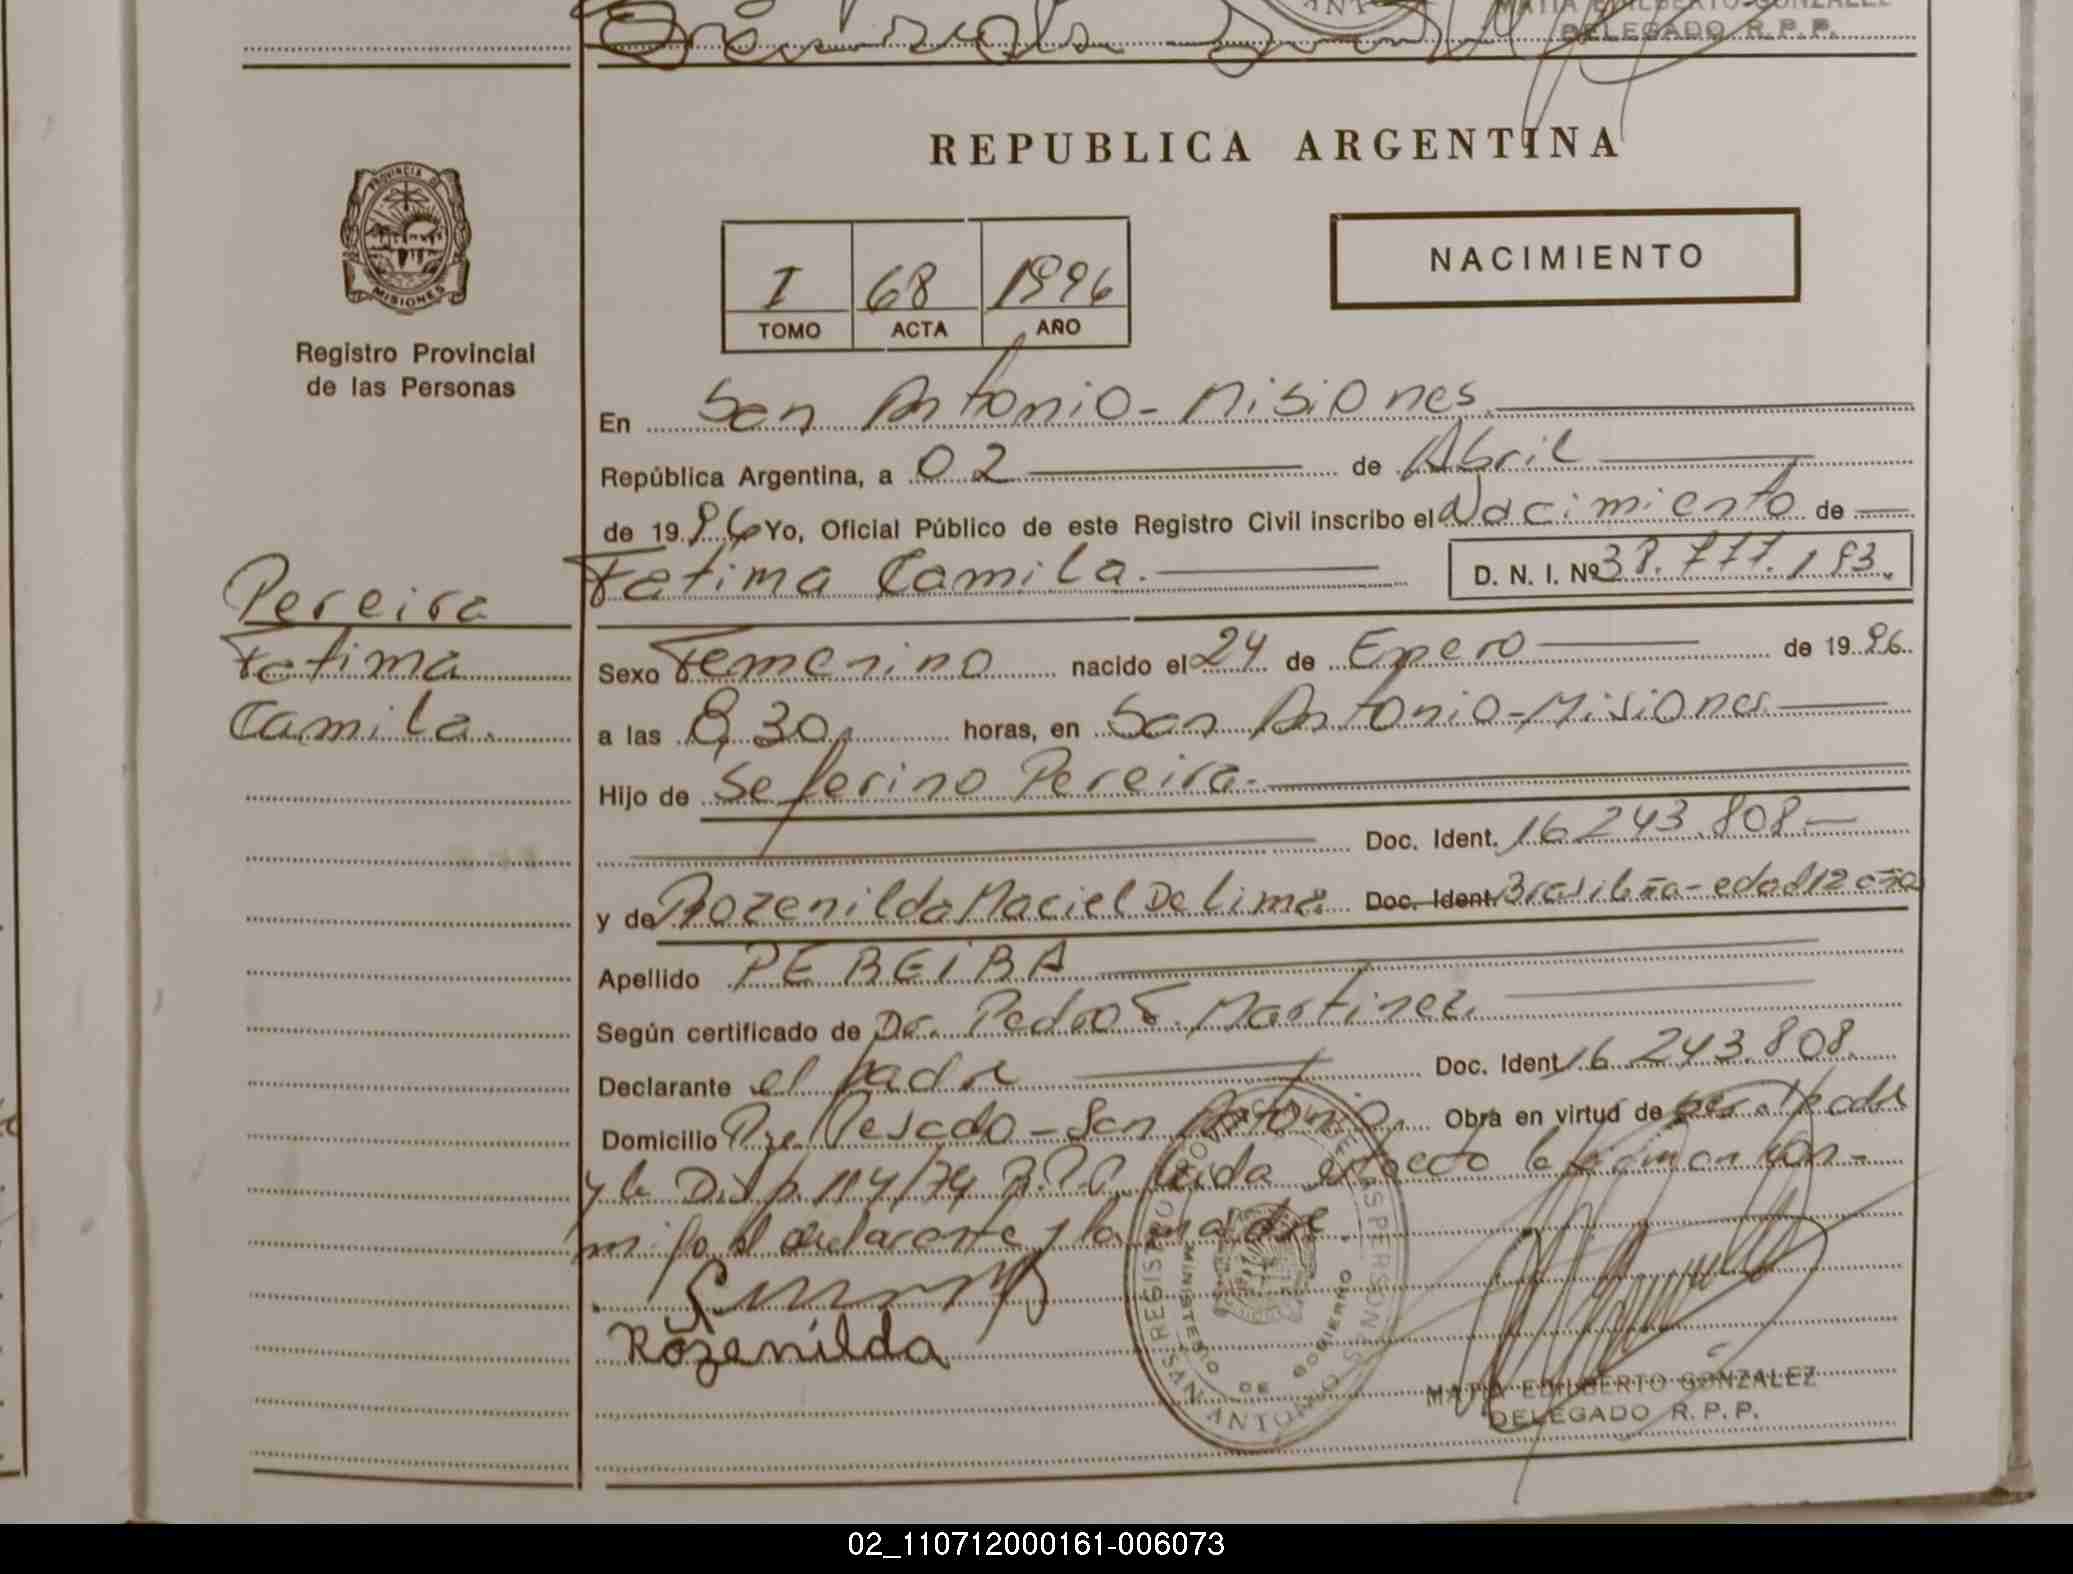 MATIA EDILBERTO GONZALEZ
DELEGADO R.P.P.
REPUBLICA ARGENTINA
PROVINCIA DE
MISIONES
Registro Provincial
de las Personas
I 68 1996
TOMO ACTA AÑO
NACIMIENTO
En San Antonio - Misiones.
República Argentina, a 02 de Abril
de 1996 Yo, Oficial Público de este Registro Civil inscribo el Nacimiento de
Fatima Camila. D. N. I. Nº 38.777.193.
Pereira
Fatima
Camila.
Sexo Femenino nacido el 24 de Enero de 1996.
a las 8,30 horas, en San Antonio - Misiones.
Hijo de Seferino Pereira.
Doc. Ident. 16.243.808.
y de Rozenilda Maciel De Lima. Doc. Ident. Brasileña - edad 12 años
Apellido PEREIRA
Según certificado de Dr. Pedro E. Martinez.
Declarante el padre Doc. Ident. 16.243.808.
Domicilio Pje. Pesado - San Antonio. Obra en virtud de
y la Disp. 114/74 R.P.P. leida el acta la firman con-
migo el declarante y la madre.
Rozenilda
REGISTRO PROVINCIAL DE LAS PERSONAS
MINISTERIO DE GOBIERNO
SAN ANTONIO
MATIA EDILBERTO GONZALEZ
DELEGADO R.P.P.
02_110712000161-006073